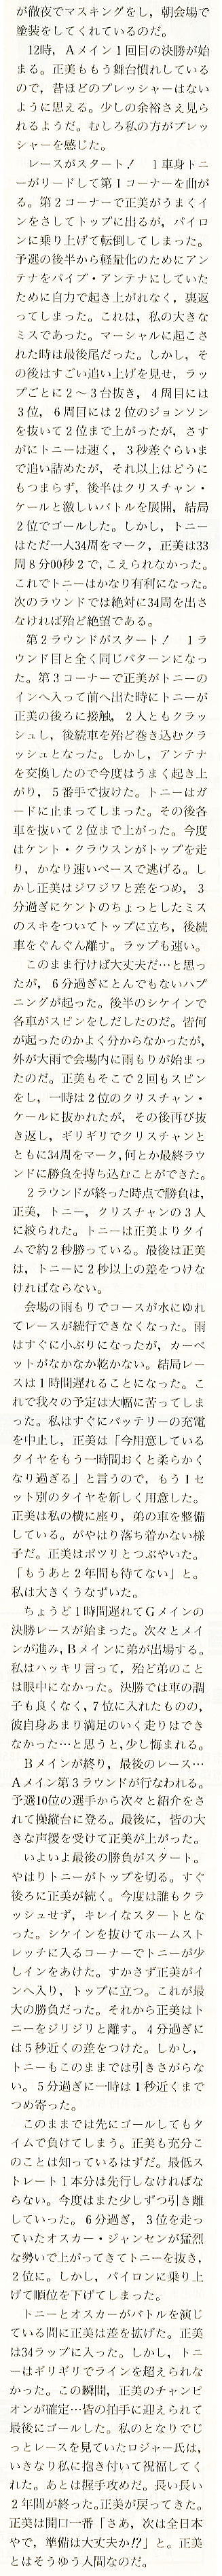 が徹夜でマスキングをし，朝会場で
塗装をしてくれているのだ。
　12時，Ａメイン１回目の決勝が始
まる。正美ももう舞台慣れしている
ので，昔ほどのプレッシャーはない
ように思える。少しの余裕さえ見ら
れるようだ。むしろ私の方がプレッ
シャーを感じた。
　レースがスタート！　１車身トニ
ーがリードして第１コーナーを曲が
る。第２コーナーで正美がうまくイ
ンをさしてトップに出るが，パイロ
ンに乗り上げて転倒してしまった。
予選の後半から軽量化のためにアン
テナをパイプ・アンテナにしていた
ために自力で起き上がれなく，裏返
ってしまった。これは，私の大きな
ミスであった。マーシャルに起こさ
れた時は最後尾だった。しかし，そ
の後はすごい追い上げを見せ，ラッ
プごとに２〜３台抜き，４周目には
３位，６周目には２位のジョンソン
を抜いて２位まで上がったが，さす
がにトニーは速く，３秒差ぐらいま
で追い詰めたが，それ以上はどうに
もつまらず，後半はクリスチャン・
ケールと激しいバトルを展開，結局
２位でゴールした。しかし，トニー
はただ一人34周をマーク，正美は33
周８分00秒２で，こえられなかった。
これでトニーはかなり有利になった。
次のラウンドでは絶対に34周を出さ
なければ殆ど絶望である。
　第２ラウンドがスタート！　１ラ
ウンド目と全く同じパターンになっ
た。第３コーナーで正美がトニーの
インへ入って前へ出た時にトニーが
正美の後ろに接触，２人ともクラッ
シュし，後続車を殆ど巻き込むクラ
ッシュとなった。しかし，アンテナ
を交換したので今度はうまく起き上
がり，５番手で抜けた。トニーはガ
ードに止まってしまった。その後各
車を抜いて２位まで上がった。今度
はケント・クラウスンがトップを走
り，かなり速いペースで逃げる。し
かし正美はジワジワと差をつめ，３
分過ぎにケントのちょっとしたミス
のスキをついてトップに立ち，後続
車をぐんぐん離す。ラップも速い。
　このまま行けば大丈夫だ…と思っ
たが，６分過ぎにとんでもないハプ
ニングが起った。後半のシケインで
各車がスピンをしだしたのだ。皆何
が起ったのかよく分からなかったが，
外が大雨で会場内に雨もりが始まっ
たのだ。正美もそこで２回もスピン
をし，一時は２位のクリスチャン・
ケールに抜かれたが，その後再び抜
き返し，ギリギリでクリスチャンと
ともに34周をマーク，何とか最終ラウ
ンドに勝負を持ち込むことができた。
　２ラウンドが終った時点で勝負は，
正美，トニー，クリスチャンの３人
に絞られた。トニーは正美よりタイ
ムで約２秒勝っている。最後は正美
は，トニーに２秒以上の差をつけな
ければならない。
　会場の雨もりでコースが水にぬれ
てレースが続行できなくなった。雨
はすぐに小ぶりになったが，カーペ
ットがなかなか乾かない。結局レー
スは１時間遅れることになった。こ
れで我々の予定は大幅に苦ってしま
った。私はすぐにバッテリーの充電
を中止し，正美は「今用意している
タイヤをもう一時間おくと柔らかく
なり過ぎる」と言うので，もう１セ
ット別のタイヤを新しく用意した。
正美は私の横に座り，弟の車を整備
している。がやはり落ち着かない様
子だ。正美はボツリとつぶやいた。
「もうあと２年間も待てない」と。
私は大きくうなずいた。
　ちょうど１時間遅れてＧメインの
決勝レースが始まった。次々とメイ
ンが進み，Ｂメインに弟が出場する。
私はハッキリ言って，殆ど弟のこと
は眼中になかった。決勝では車の調
子も良くなく，７位に入れたものの，
彼自身あまり満足のいく走りはでき
なかった…と思うと，少し悔まれる。
　Ｂメインが終り，最後のレース…
Ａメイン第３ラウンドが行なわれる。
予選10位の選手から次々と紹介をさ
れて操縦台に登る。最後に，皆の大
きな声援を受けて正美が上がった。
　いよいよ最後の勝負がスタート。
やはりトニーがトップを切る。すぐ
後ろに正美が続く。今度は誰もクラ
ッシュせず，キレイなスタートとな
った。シケインを抜けてホームスト
レッチに入るコーナーでトニーが少
しインをあけた。すかさず正美がイ
ンへ入り，トップに立つ。これが最
大の勝負だった。それから正美はト
ニーをジリジリと離す。４分過ぎに
は５秒近くの差をつけた。しかし，
トニーもこのままでは引きさがらな
い。５分過ぎに一時は１秒近くまで
つめ寄った。
　このままでは先にゴールしてもタ
イムで負けてしまう。正美も充分こ
のことは知っているはずだ。最低ス
トレート１本分は先行しなければな
らない。今度はまた少しずつ引き離
していった。６分過ぎ，３位を走っ
ていたオスカー・ジャンセンが猛烈
な勢いで上がってきてトニーを抜き，
２位に。しかし，パイロンに乗り上
げて順位を下げてしまった。
　トニーとオスカーがバトルを演じ
ている間に正美は差を拡げた。正美
は34ラップに入った。しかし，トニ
ーはギリギリでラインを超えられな
かった。この瞬間，正美のチャンピ
オンが確定…皆の拍手に迎えられて
最後にゴールした。私のとなりでじ
っとレースを見ていたロジャー氏は，
いきなり私に抱き付いて祝福してく
れた。あとは握手攻めだ。長い長い
２年間が終った。正美が戻ってきた。
正美は開口一番「さあ，次は全日本
やで，準備は大丈夫か!?」と。正美
とはそうゆう人間なのだ。